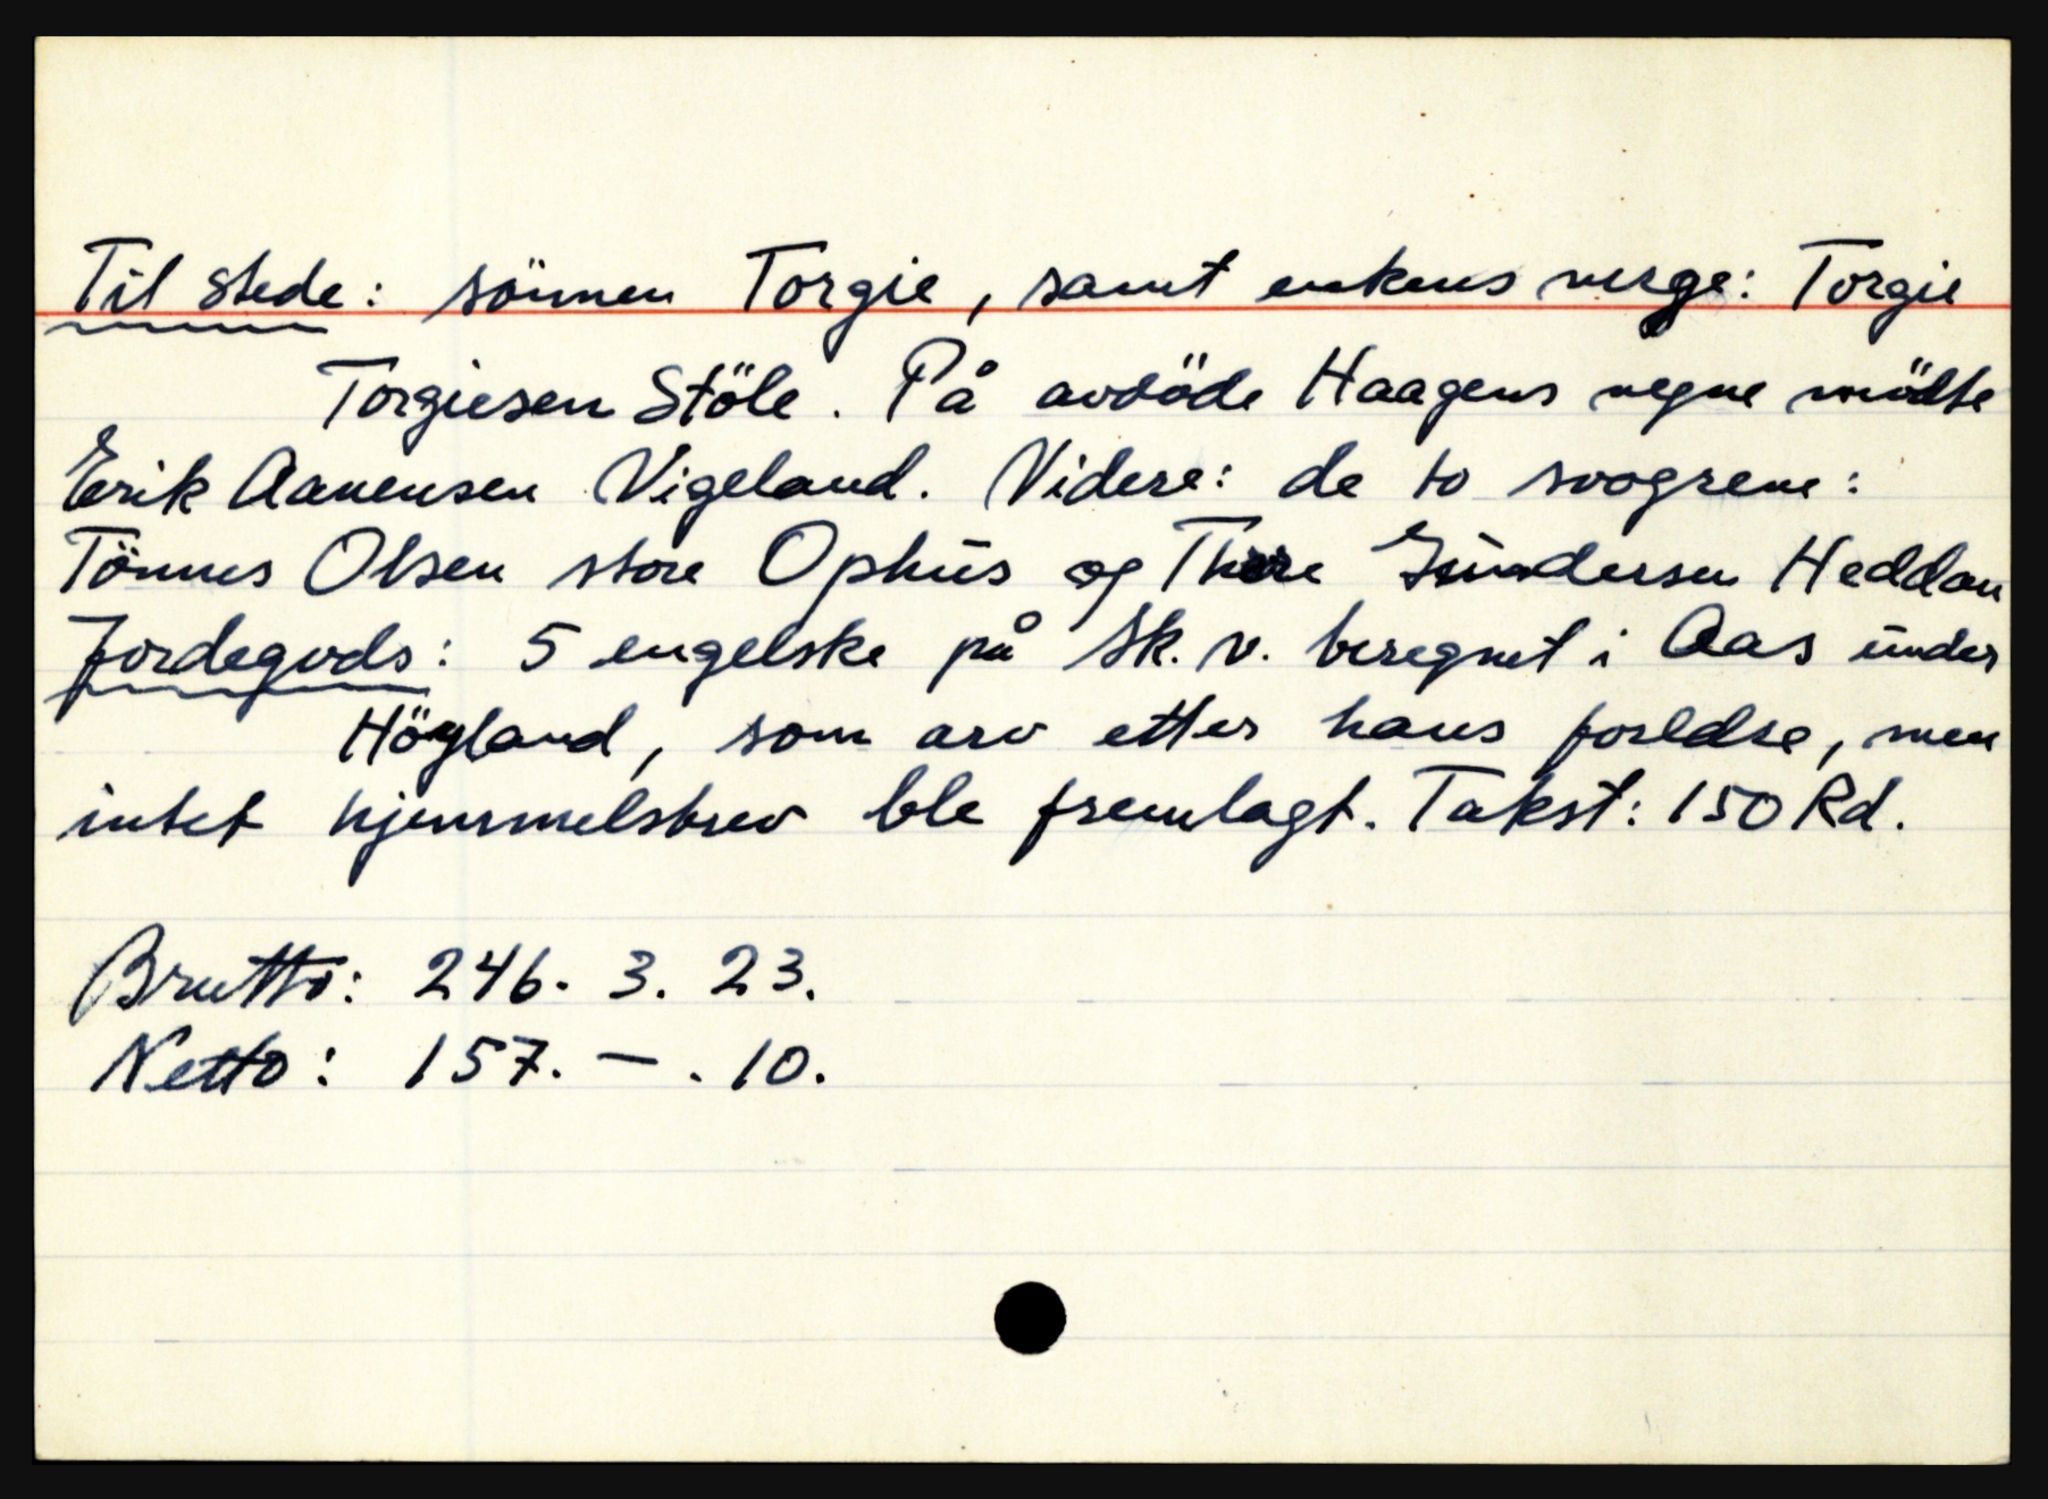 Til stede: sönnen Torgie, samt enkens verge: Torgie
Torgiesen Stöle. På avdöde Haagens vegne mödte
Erik Aanensen Vigeland. Videre: de to svogrene:
Tönnes Olsen store Ophūs og Thore Gūndersen Heddan
Jordegods: 5 engelske på sk. v. beregnet i Aas ūnder
Högland, som arv etter hans foreldre, men
intet hjemmelsbrev ble fremlagt. Takst: 150 Rd.
Brutto: 246. 3. 23.
Netto: 157. – . 10.